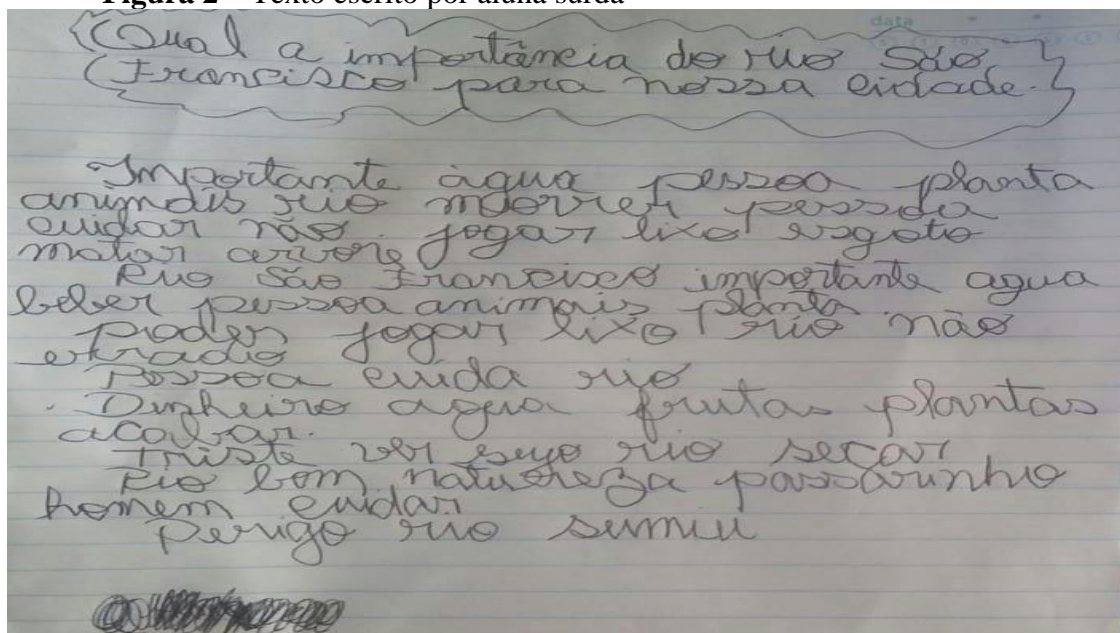 Figura 2 – Texto escrito por aluna surda
data
Qual a importância do rio São
Francisco para nossa cidade.
Importante àgua pessoa planta
animais rio morrer pessoa
cuidar não. jogar lixo esgoto
matar arvore
Rio São Francisco importante agua
beber pessoa animais planta.
poder jogar lixo rio não
etradio
Pessoa cuida rio
Dinheiro agua frutas plantas
acabar.
Triste ver sujo rio secar
Rio bom natureza passarinho
homem cuidar
Perigo rio sumiu